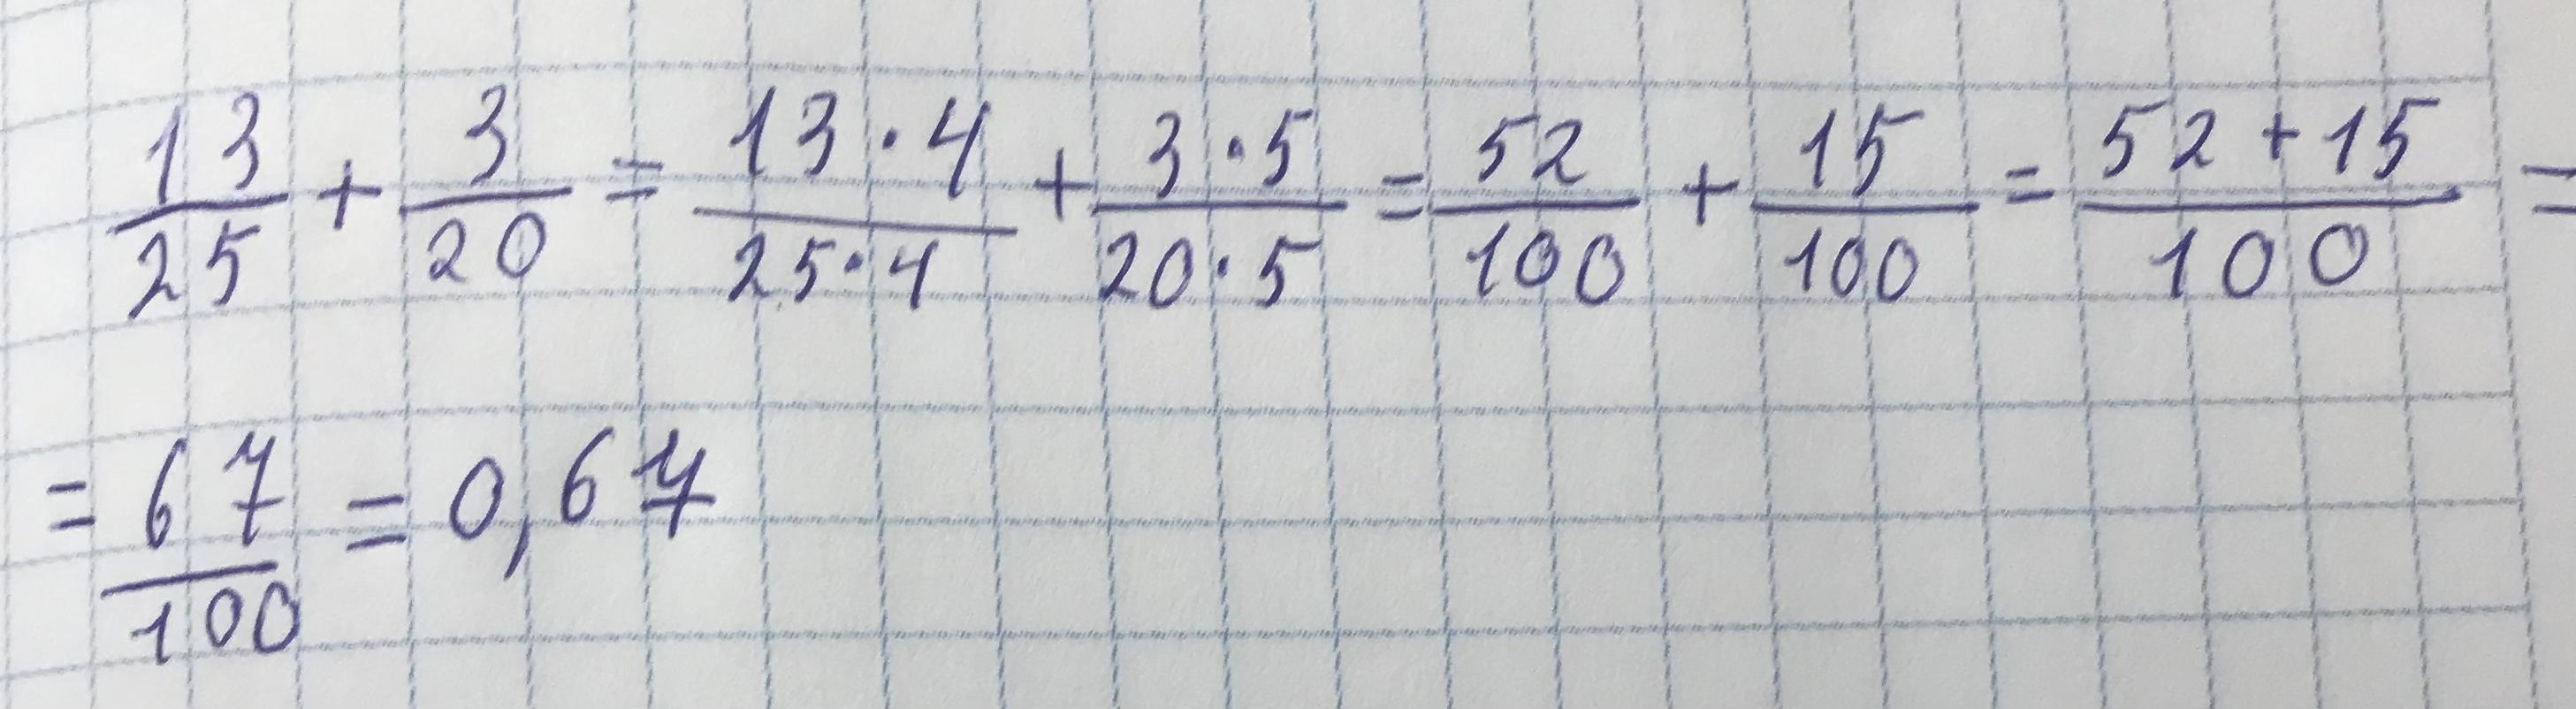 13/25 + 3/20 = 13·4/25·4 + 3·5/20·5 = 52/100 + 15/100 = 52+15/100 =
= 67/100 = 0,67